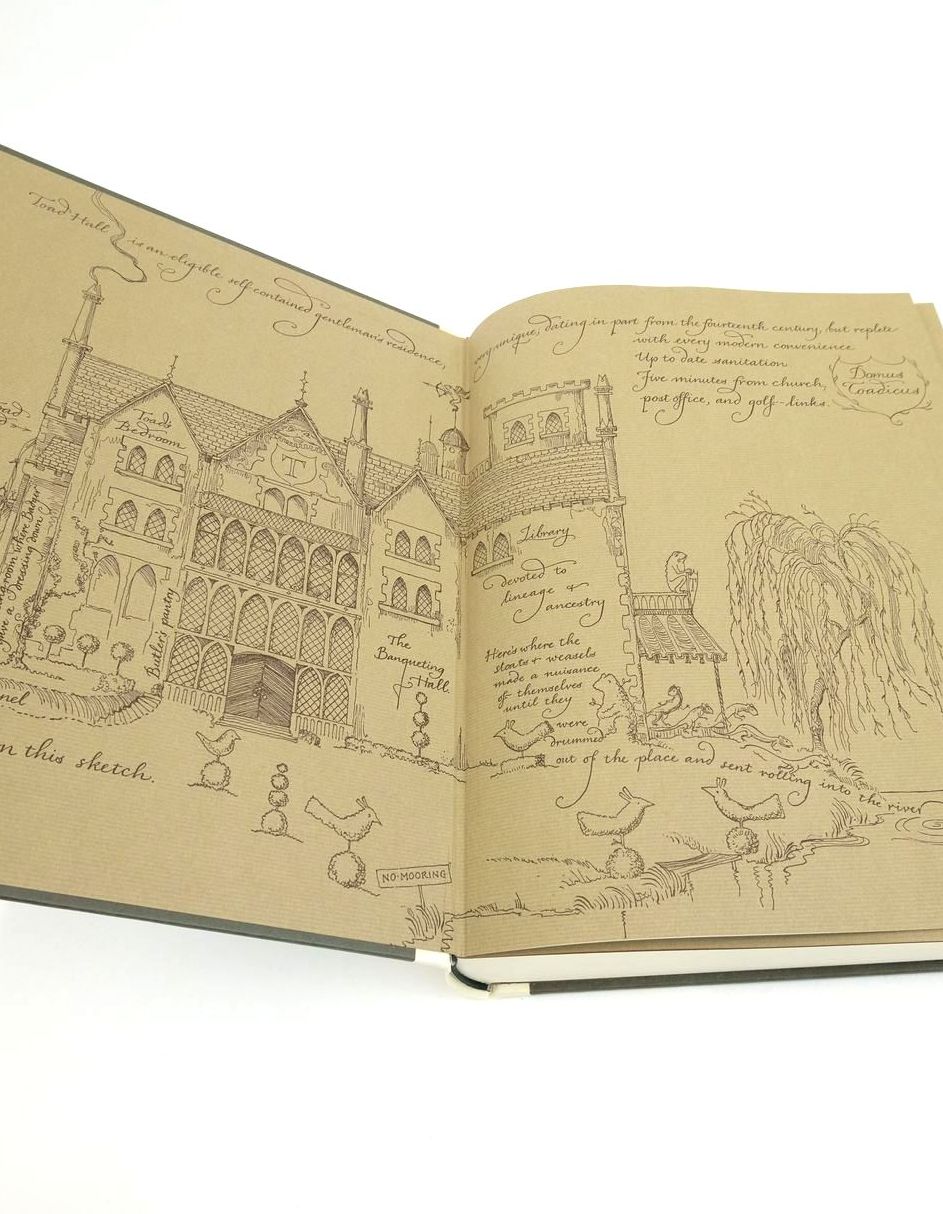 Toad Hall is an eligible self-contained gentleman's residence,
very unique; dating in part from the fourteenth century, but replete
with every modern convenience
Up to date sanitation
Five minutes from church,
post office, and golf-links.
Domus
Toadicus
Toad's
Bedroom
T
room where Badger
gave a dressing down
Butler's pantry
The
Banqueting
Hall.
Library
devoted to
lineage &
ancestry
Here's where the
stoats & weasels
made a nuisance
of themselves
until they
were
drummed
out of the place and sent rolling into the river
on this sketch.
NO MOORING